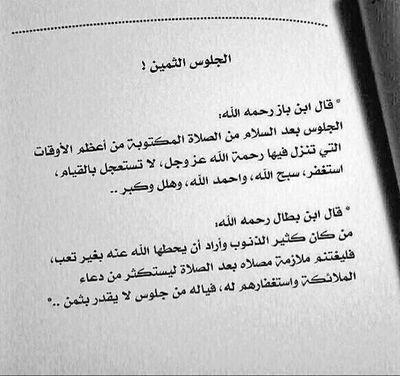 الجلوس الثمين !
* قال ابن باز رحمه الله:
الجلوس بعد السلام من الصلاة المكتوبة من أعظم الأوقات
التي تنزل فيها رحمة الله عز وجل، لا تستعجل بالقيام،
استغفر، سبح الله، واحمد الله، وهلل وكبر ..
* قال ابن بطال رحمه الله:
من كان كثير الذنوب وأراد أن يحطها الله عنه بغير تعب،
فليغتنم ملازمة مصلاه بعد الصلاة ليستكثر من دعاء
الملائكة واستغفارهم له، فياله من جلوس لا يقدر بثمن .."